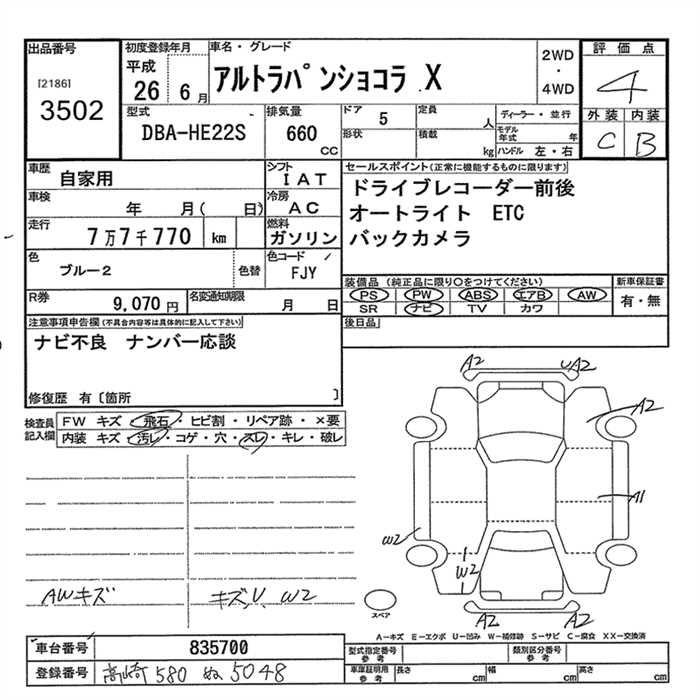 出品番号
[2186]
3502
初度登録年月
平成
26 6月
車名・グレード
アルトラパンショコラ X
2WD
・
4WD
評価点
4
外装 内装
C B
型式
DBA-HE22S
排気量
660
CC
ドア 5
定員 人
形状
積載 kg
ディーラー・並行
モデル年式 年
ハンドル 左・右
車歴
自家用
シフト
IAT
車検
年 月( 日)
冷房
AC
走行
7万7千770 km
燃料
ガソリン
色
ブルー2
色替
色コード
FJY
R券
9,070円
名変通知期限
月 日
セールスポイント(正常に機能するものに限ります)
ドライブレコーダー前後
オートライト ETC
バックカメラ
装備品(純正品に限り○をつけてください)
PS PW ABS エアB AW
SR ナビ TV カワ
新車保証書
有・無
後日品
注意事項申告欄(不具合内容等は具体的に記入して下さい)
ナビ不良 ナンバー応談
修復歴 有〔箇所 〕
検査員記入欄
FW キズ・飛石・ヒビ割・リペア跡・×要
内装 キズ・汚レ・コゲ・穴・スレ・キレ・破レ
AWキズ
キズ,U,W2
A2
UA2
A2
A1
W2
W2
A2
A2
スペア
A−キズ E−エクボ U−凹み W−補修跡 S−サビ C−腐食 XX−交換済
車台番号
835700
登録番号
高崎 580 ぬ 5048
型式指定番号
参考
類別区分番号
参考
車庫証明用
参考
長さ cm 幅 cm 高さ cm